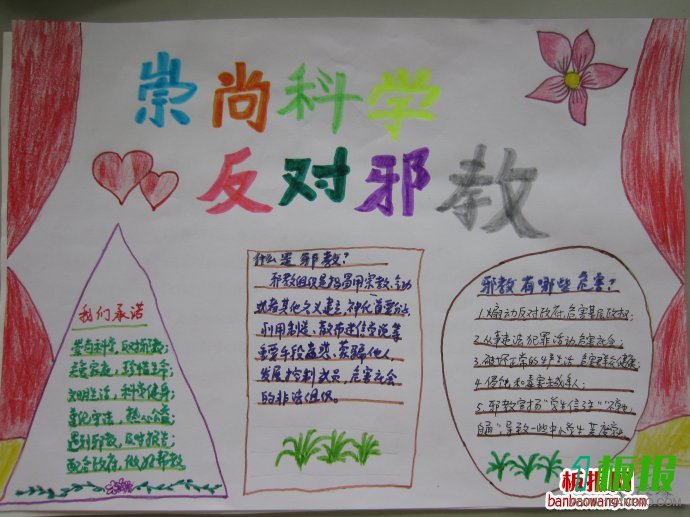 崇尚科学
反对邪教
我们承诺
崇尚科学,反对邪教;
关爱家庭,珍惜生命
文明生活,科学健身;
遵纪守法,热心公益
遇到邪教,及时报告
配合政府,做好帮教
什么是邪教?
邪教组织是指冒用宗教、气功
或者其他名义建立,神化首要分子,
利用制造、散布迷信邪说等
主要手段蛊惑、蒙骗他人,
发展控制成员,危害社会
的非法组织。
邪教有哪些危害?
1.煽动反对政府,危害基层政权;
2.从事违法犯罪活动危害社会;
3.破坏正常的生产生活,
4.侵蚀和毒害未成年人;
5.邪教宣扬
导致一些中小学生
板报
banbaowang.com